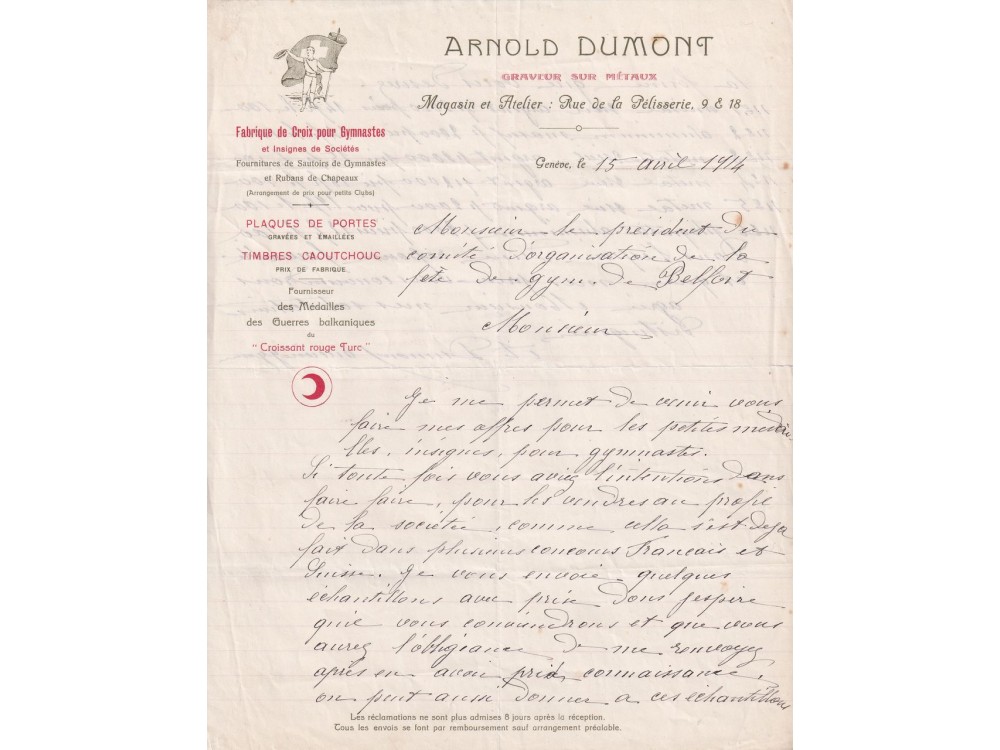 ARNOLD DUMONT
GRAVEUR SUR MÉTAUX
Magasin et Atelier : Rue de la Pélisserie, 9 & 18
Fabrique de Croix pour Gymnastes
et Insignes de Sociétés
Fournitures de Sautoirs de Gymnastes
et Rubans de Chapeaux
(Arrangement de prix pour petits Clubs)
PLAQUES DE PORTES
GRAVÉES ET ÉMAILLÉES
TIMBRES CAOUTCHOUC
PRIX DE FABRIQUE
Fournisseur
des Médailles
des Guerres balkaniques
du
"Croissant rouge Turc"
Genève, le 15 avril 1914
Monsieur le président du
comité d'organisation de la
fête de gym. de Belfort
Monsieur
Je me permet de venir vous
faire mes offres pour les petites médai
lles, insignes, pour gymnastes.
Si toute fois vous aviez l'intentions dans
faire faire, pour les vendres au profit
de la sociétée, comme cella s'est deja
fait dans plusieurs concours Francais et
Suisse. Je vous envoie quelques
échantillons avec prix dons j'espère
qu'il vous conviendrons et que vous
aurez l'obligeance de me renvoyez
après en avoir pris connaissance,
on peut aussi donner a ces échantillons
Les réclamations ne sont plus admises 8 jours après la réception.
Tous les envois se font par remboursement sauf arrangement préalable.